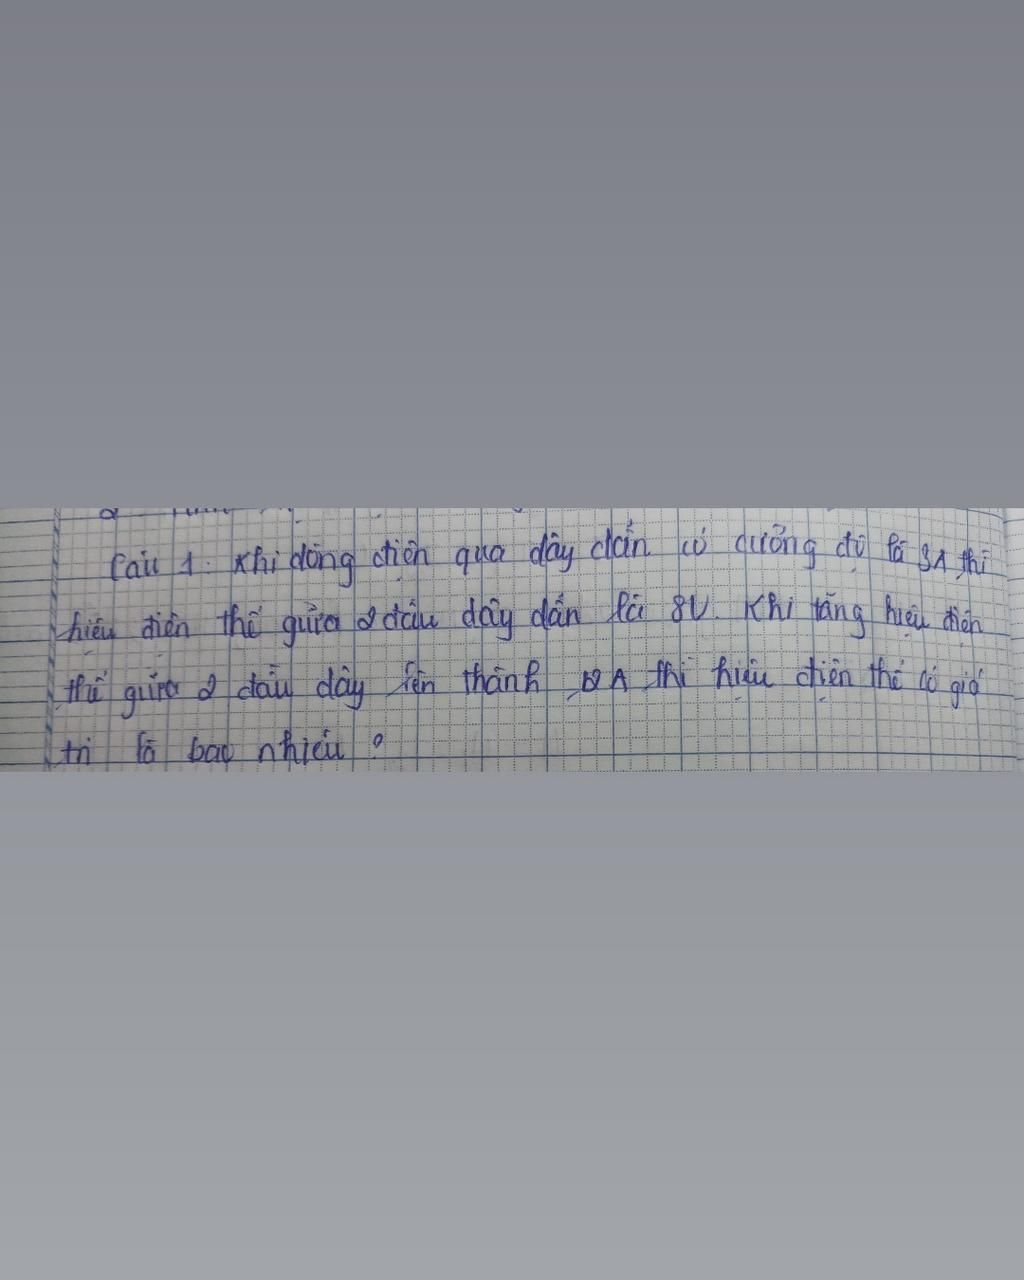 Câu 1. Khi dòng điện qua dây dẫn có cường độ là 3A thì
hiệu điện thế giữa 2 đầu dây dẫn là 8V. Khi tăng hiệu điện
thế giữa 2 đầu dây lên thành A thì hiệu điện thế có giá
trị là bao nhiêu ?